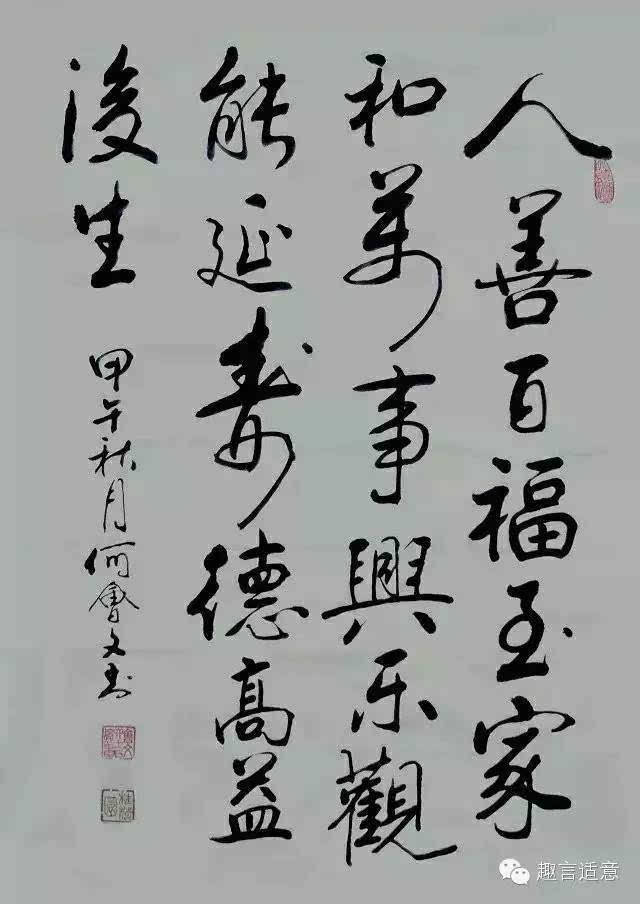 人善百福至家
和萬事興乐觀
能延壽德高益
後生
甲午秋月何會文书
趣言适意